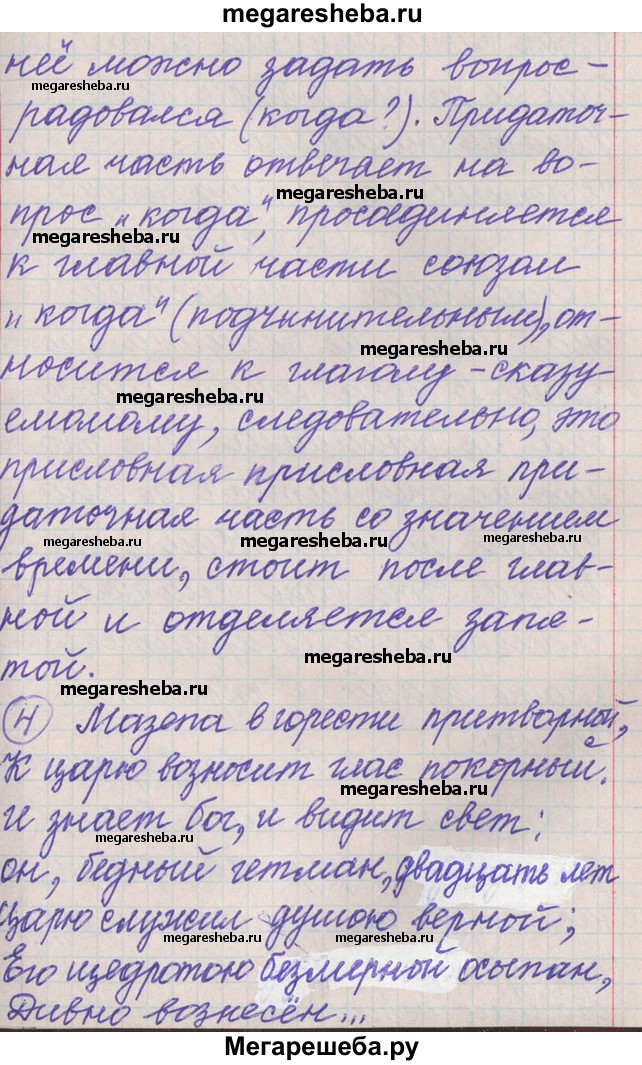 megaresheba.ru
ней можно задать вопрос -
megaresheba.ru
радовался (когда?). Придаточ-
ная часть отвечает на во-
megaresheba.ru
прос „когда", присоединяется
megaresheba.ru
к главной части союзом
„когда" (подчинительным), от-
megaresheba.ru
носится к глаголу - сказу-
megaresheba.ru
емомому, следовательно, это
присловная присловная при-
даточная часть со значением
megaresheba.ru megaresheba.ru megaresheba.ru
времени, стоит после глав-
ной и отделяется запя-
megaresheba.ru
той.
megaresheba.ru
4 Мазепа в горести притворной,
К царю возносит глас покорный.
megaresheba.ru
И знает бог, и видит свет:
megaresheba.ru
он, бедный гетман, двадцать лет
Царю служил душою верной;
megaresheba.ru megaresheba.ru
Его щедротою безмерной осыпан,
Дивно вознесён...
Мегарешеба.ру